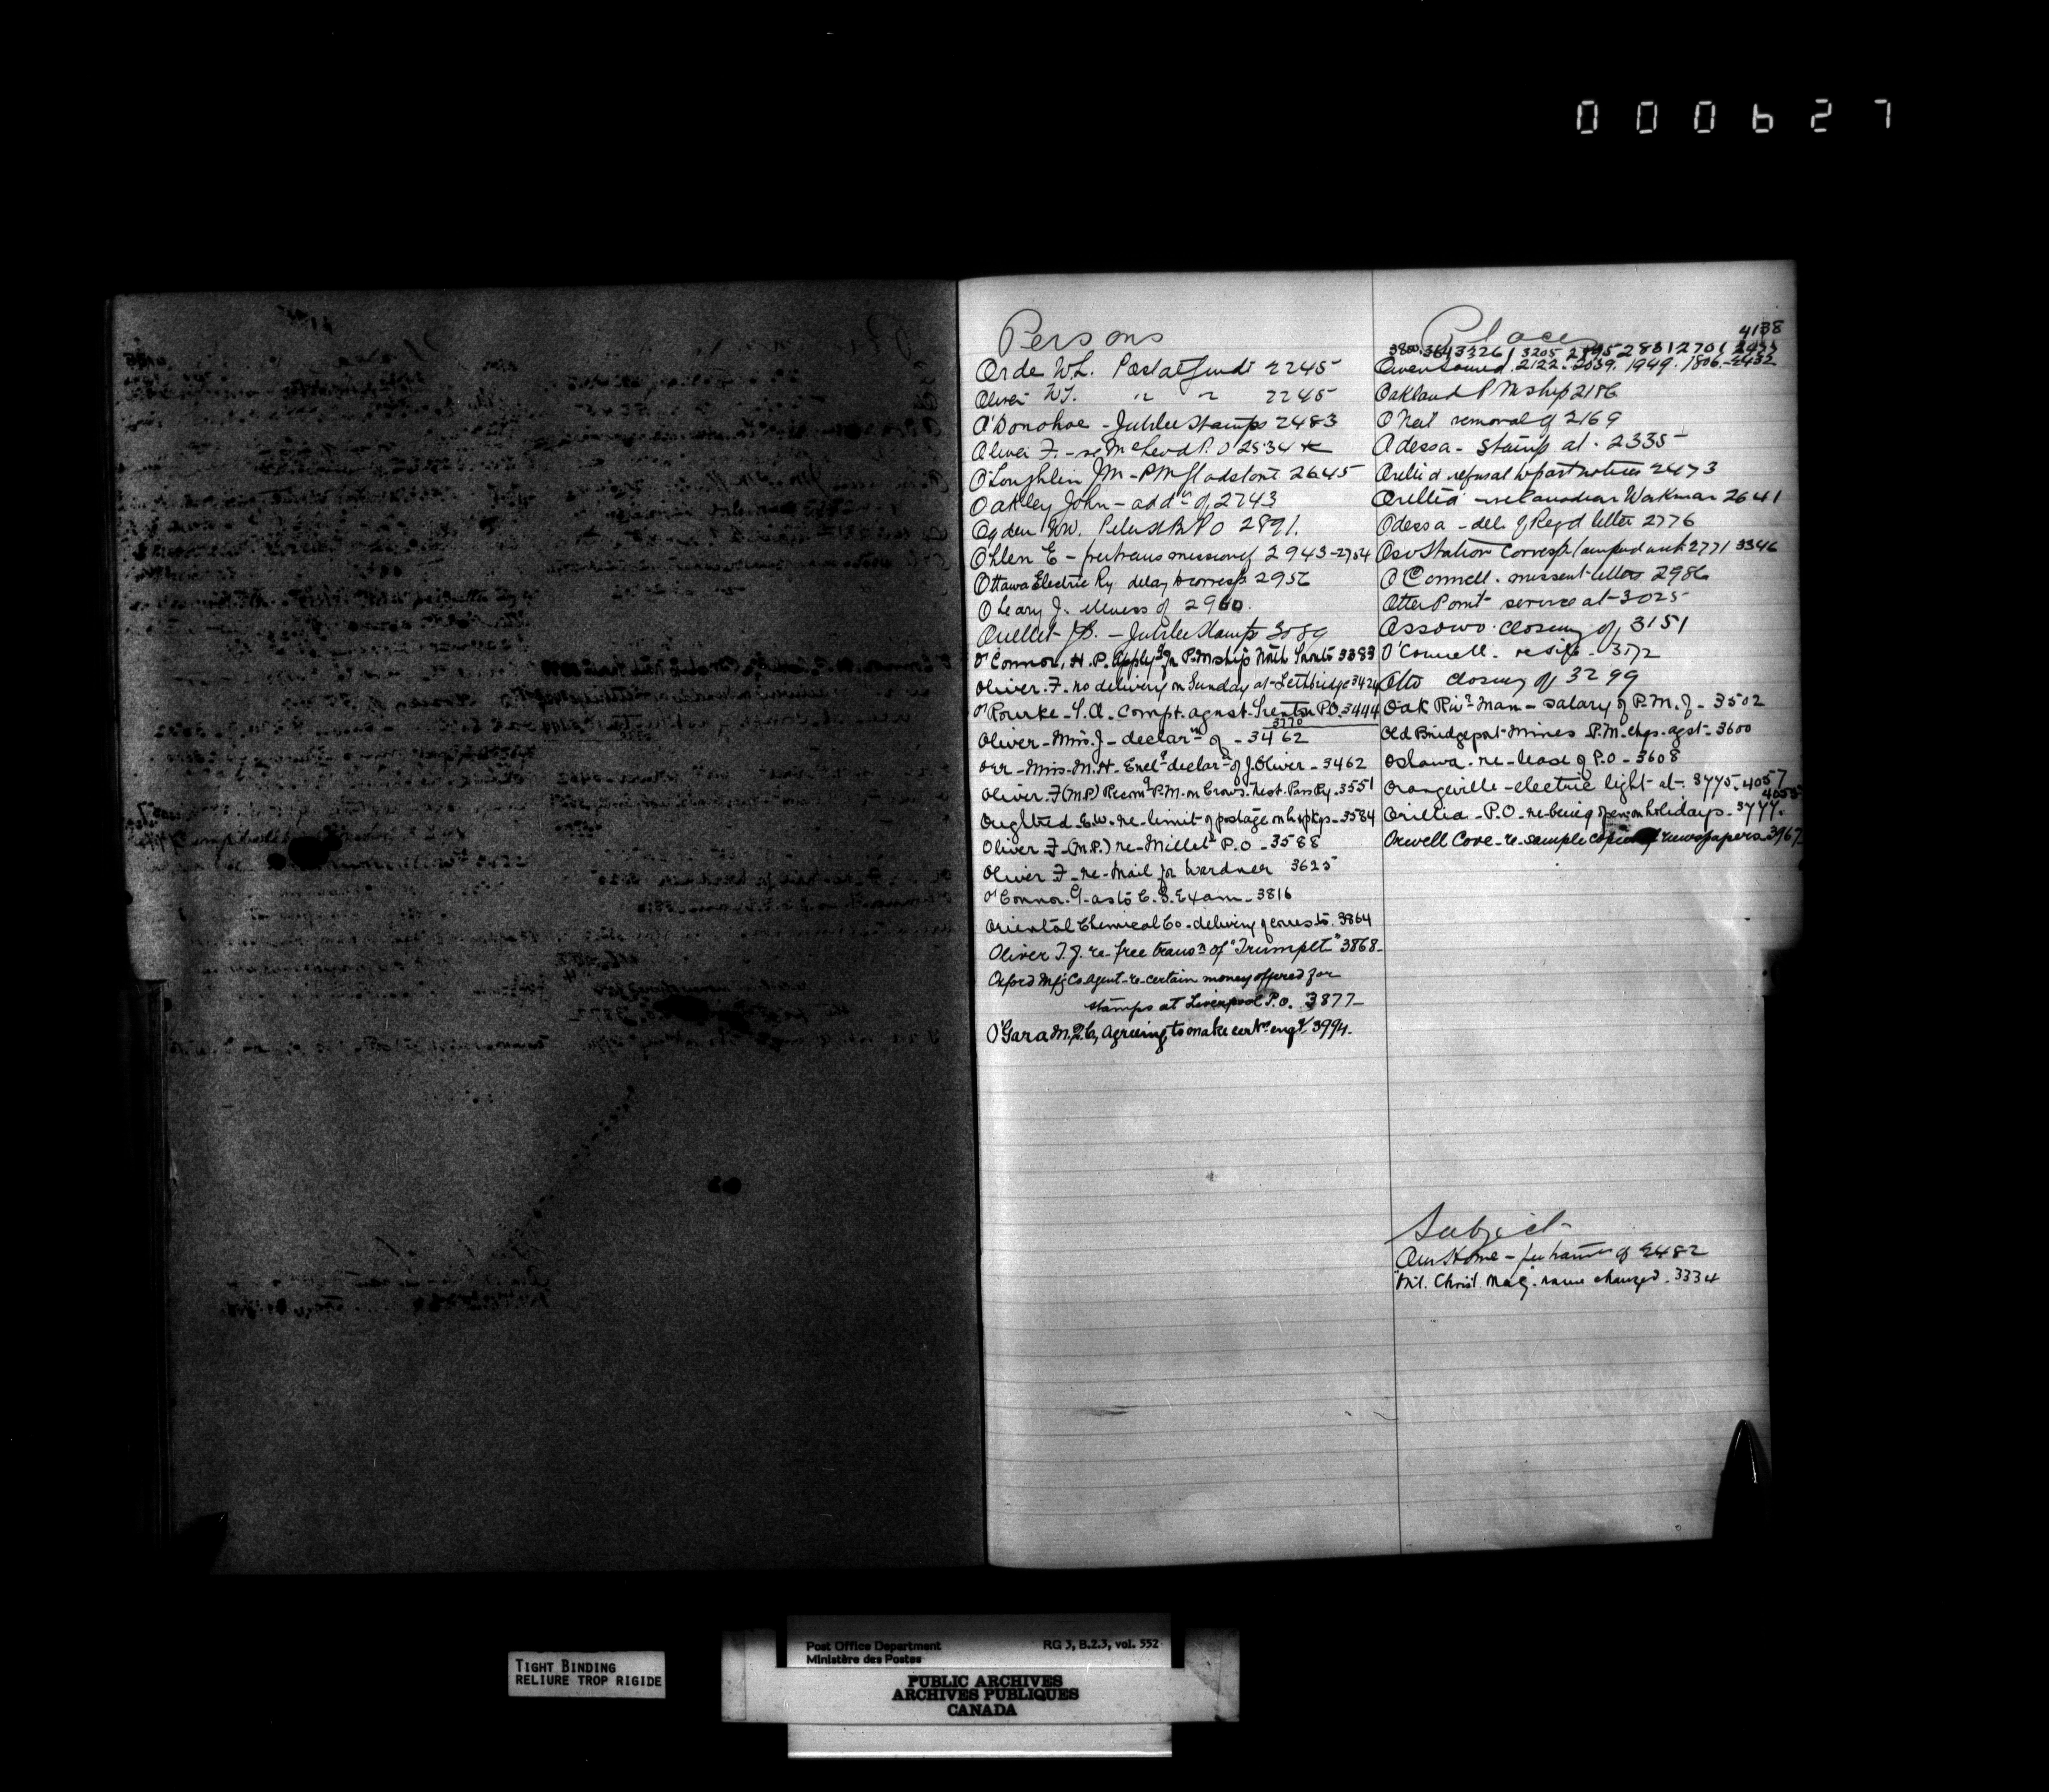 000627
Persons
Orde W.L. Postal Guide 2245
Oliver W.T. " " 2245
O'Donohoe - Jubilee Stamps 2483
Oliver F. - re McLeod P.O 2534
O'Loughlin J M - PM Gladstone 2645
Oakley John - addn of 2743
Ogden WW. P O 2891.
Ohlen E - free transmission of 2943-2754
Ottawa Electric Ry delay to corresp 2956
O'Leary J. illness of 2960.
Ouellet J B. - Jubilee Stamps 3089
O'Connor, H. P. applyg for P.Mship North 3383
Oliver. F. no delivery on Sunday at Lethbridge 3424
O'Rourke - T. A. Compt. agnst. Trenton P.O. 3444
3770
Oliver - Mrs. J - declarn of - 3462
Orr - Miss. M. H - Encl declarn of J. Oliver - 3462
Oliver. F (M.P.) Recomg P.M. on Crow's Nest Pass Ry. 3551
Oughtred E.W. re - limit of postage on pkgs - 3584
Oliver F - (M.P.) re - Millet P.O - 3588
Oliver F - re - Mail for Wardner 3625
O'Connor. G. as to C. S. Exam - 3816
Oriental Chemical Co. - delivery of corres to. 3864
Oliver T. J. re - free transn of "Trumpet" 3868 -
Oxford Mfg Co Agent - re - certain money offered for
stamps at Liverpool P.O. 3877 -
O'Gara M, Q.C, agreeing to make certn engy 3994.
Places
4138
3800. 3643 3261 3205 2895 2831 2701
Owen Sound. 2122. 2039. 1949. 1806. - 2432
Oakland P Mship 2186
O'Neil removal of 2169
Odessa - Stamp at - 2335
Orillia refusal to post notices 2473
Orillia - re Canadian Workman 2641
Odessa - del. of Regd letter 2776
Oso Station Corresp. tampered with 2771 3346
O'Connell. missent letters 2986
Otter Point service at - 3025
Ossowo. closing of 3151
O'Connell. re site - 3172
Otto closing of 3299
Oak Rivr Man - salary of P.M. of - 3502
Old Bridgeport Mines P.M. chgs. agst - 3600
Oshawa. re - lease of P.O - 3608
Orangeville - electric light at - 3775. 4057
4053
Orillia - P.O. re - being open on holidays - 3777.
Orwell Cove - re - sample copies of newspapers 3967
Subject
Our Home - of 2482
"Mil. Christ. Mag. name changed. 3334
TIGHT BINDING
RELIURE TROP RIGIDE
Post Office Department RG 3, B.2.3, vol. 552
Ministère des Postes
PUBLIC ARCHIVES
ARCHIVES PUBLIQUES
CANADA